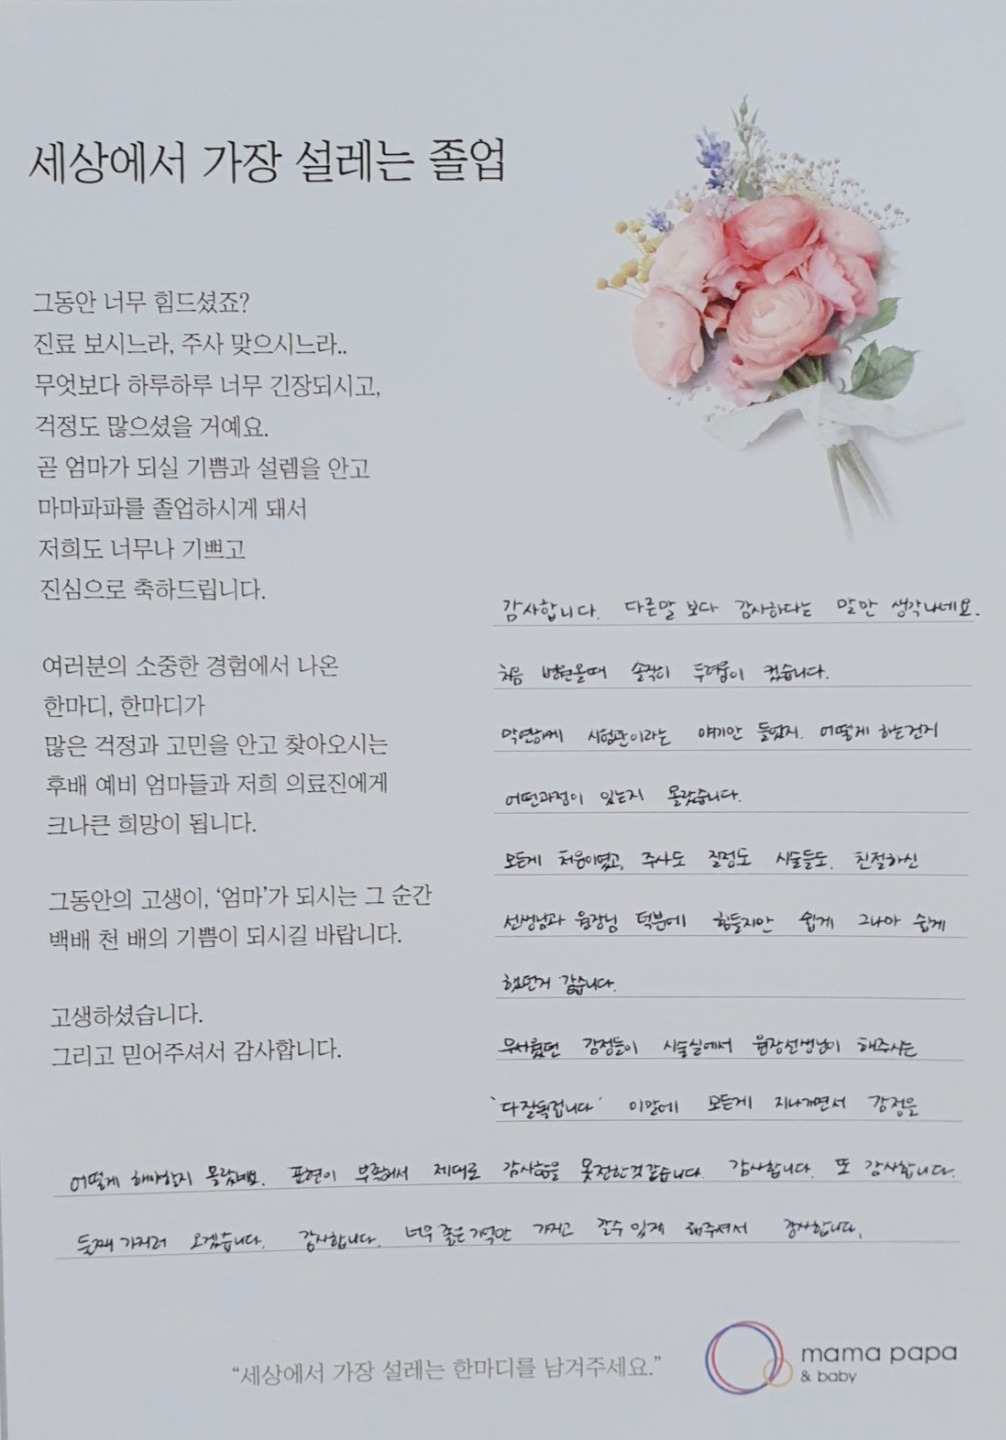 세상에서 가장 설레는 졸업
그동안 너무 힘드셨죠?
진료 보시느라, 주사 맞으시느라..
무엇보다 하루하루 너무 긴장되시고,
걱정도 많으셨을 거예요.
곧 엄마가 되실 기쁨과 설렘을 안고
마마파파를 졸업하시게 돼서
저희도 너무나 기쁘고
진심으로 축하드립니다.
여러분의 소중한 경험에서 나온
한마디, 한마디가
많은 걱정과 고민을 안고 찾아오시는
후배 예비 엄마들과 저희 의료진에게
크나큰 희망이 됩니다.
그동안의 고생이, ‘엄마’가 되시는 그 순간
백배 천 배의 기쁨이 되시길 바랍니다.
고생하셨습니다.
그리고 믿어주셔서 감사합니다.
감사합니다. 다른말 보다 감사하다는 말만 생각나네요.
처음 병원올때 솔직히 두려움이 컸습니다.
막연하게 시험관이라는 얘기만 들었지. 어떻게 하는건지
어떤과정이 있는지 몰랐습니다.
모든게 처음이였고, 주사도 질정도 시술들도, 친절하신
선생님과 원장님 덕분에 힘들지만 쉽게 그나마 쉽게
했던거 같습니다.
무서웠던 감정들이 시술실에서 원장선생님이 해주시는
'다잘될겁니다' 이말에 모든게 지나가면서 감정을
어떻게 해야할지 몰랐네요. 표현이 부족해서 제대로 감사함을 못전한것같습니다. 감사합니다. 또 감사합니다.
둘째 가지러 오겠습니다. 감사합니다. 너무 좋은 기억만 가지고 갈수 있게 해주셔서 감사합니다.
“세상에서 가장 설레는 한마디를 남겨주세요.”
mama papa
& baby